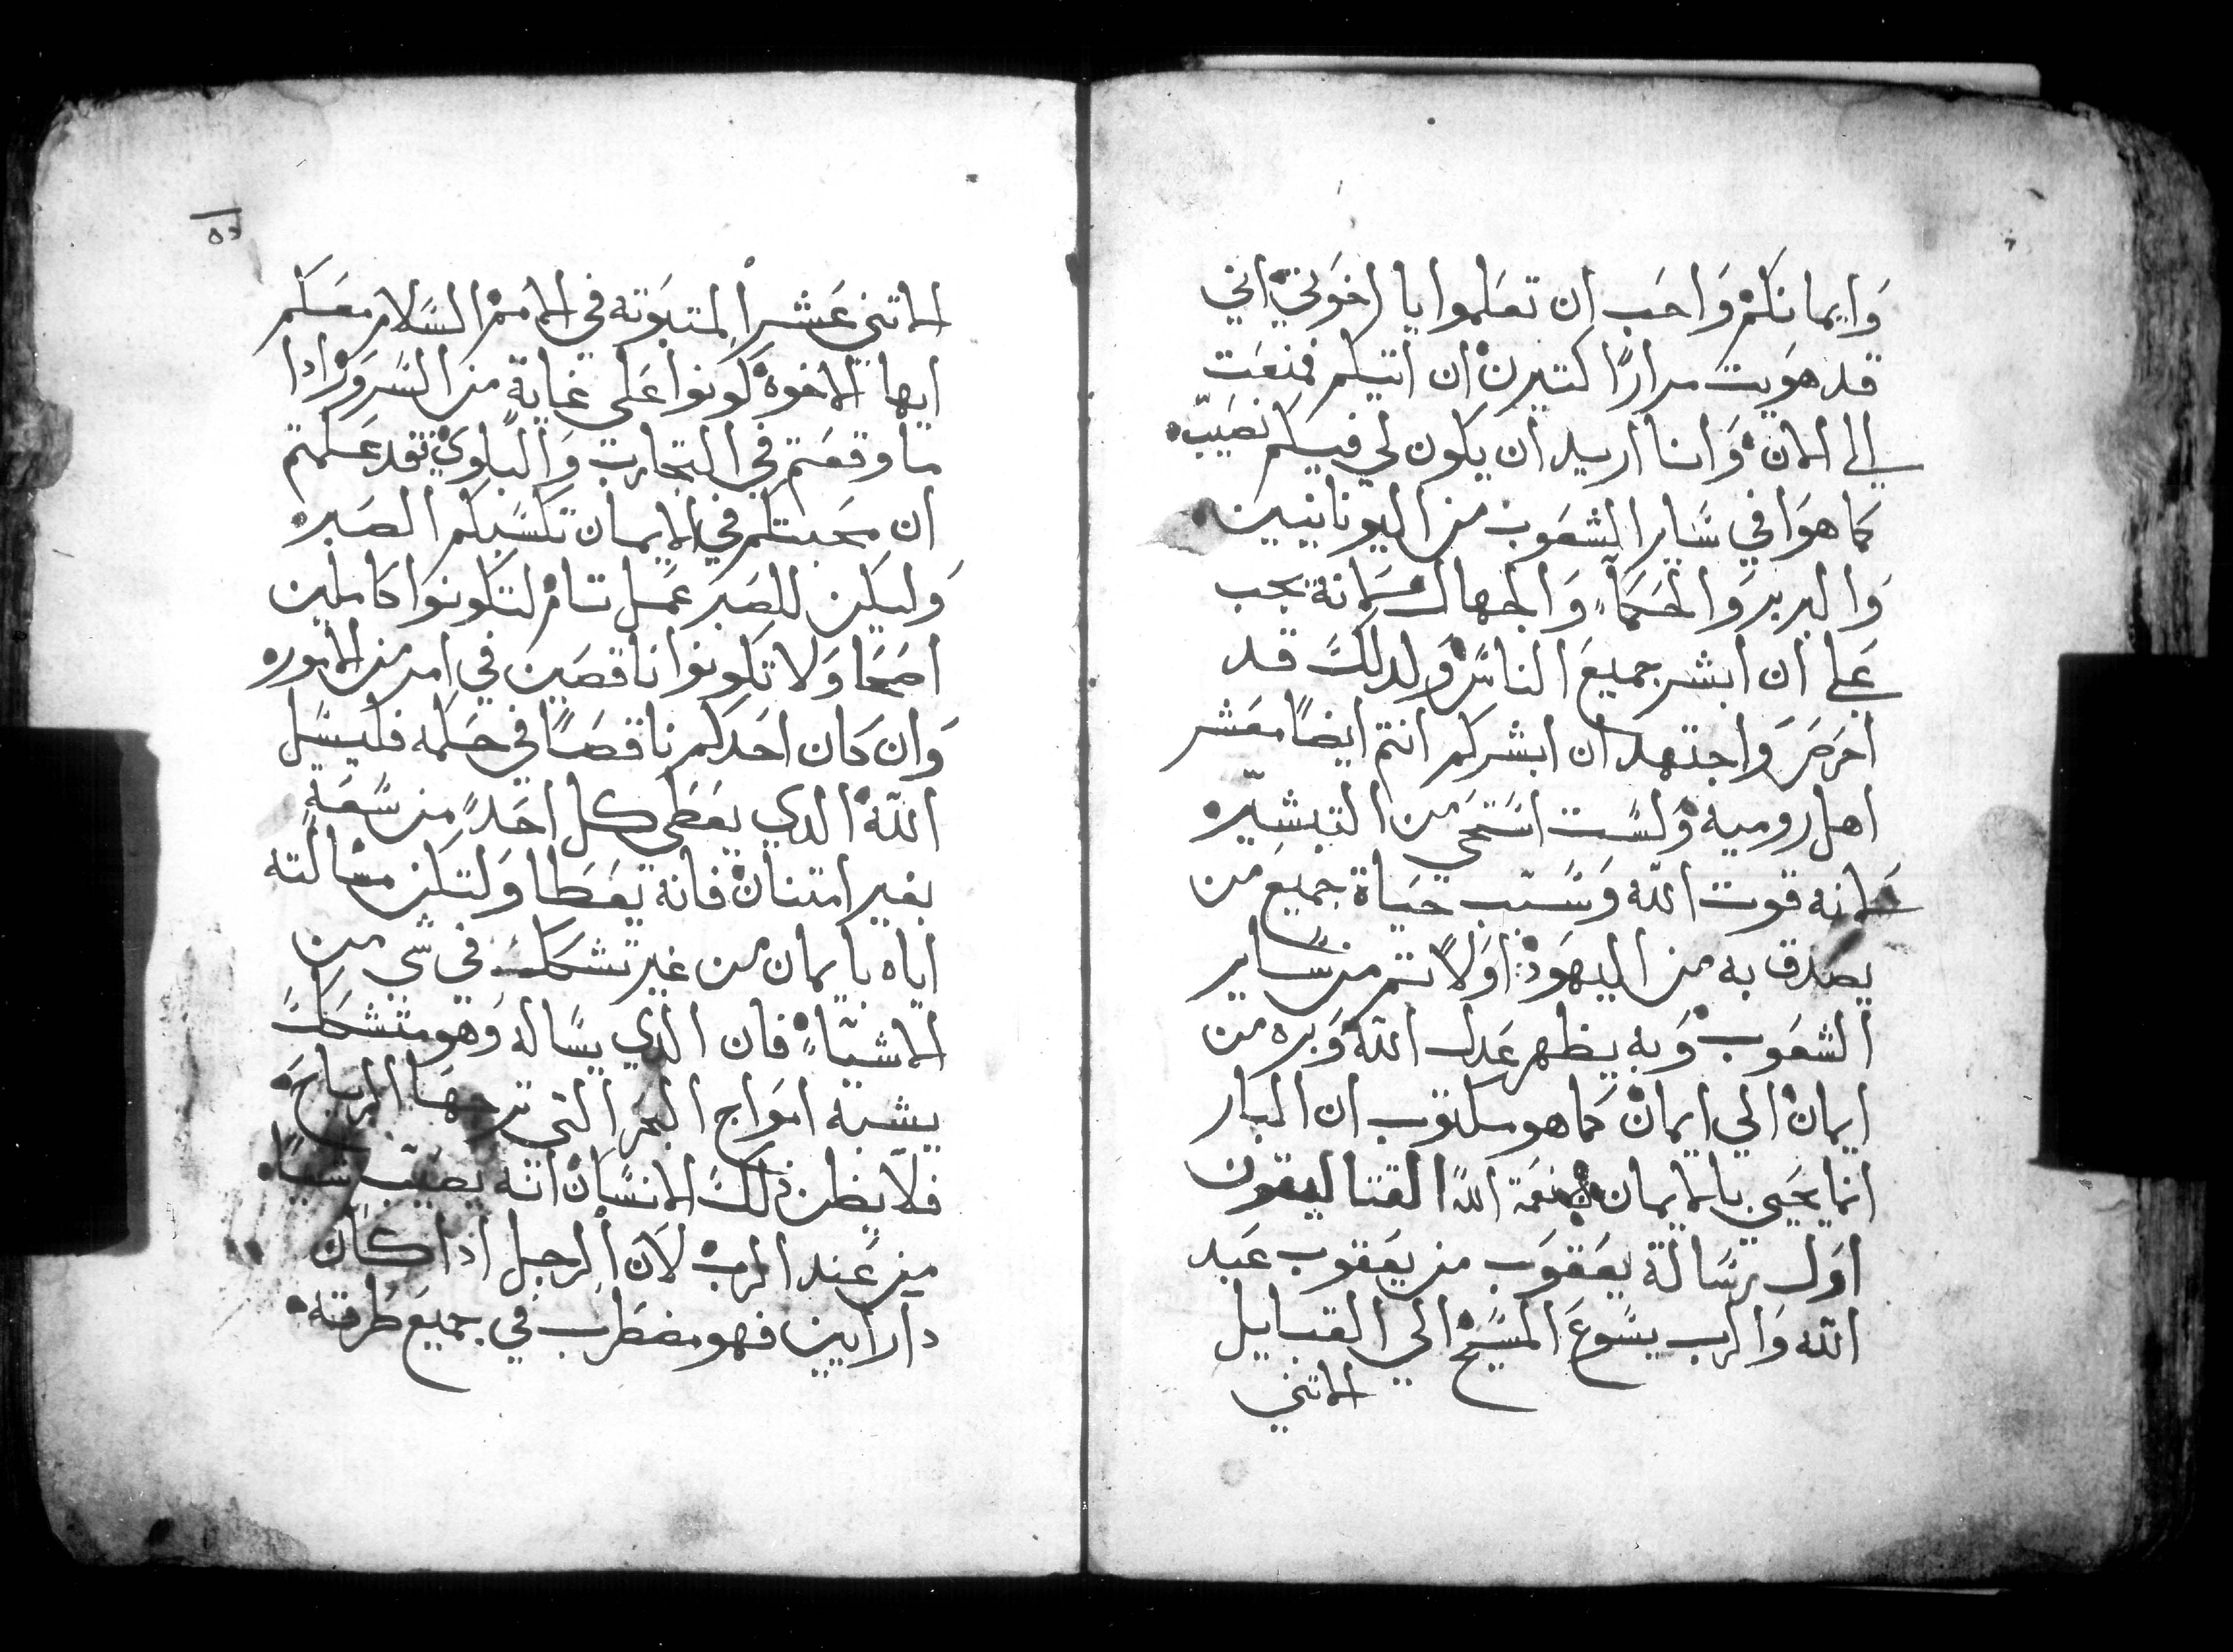 وَايمانكمْ وَاحَب ان تعَلموا يا اخوَتيْ اني
قد هوَيت مرارًا كتيرنْ ان اتيكم فمنعَت
الي الانْ وَانا اريد ان يكون لي فيكم نصَيبْ
كما هوَا في سَاير الشعَوب من اليونانيين
وَالبربر وَالحكمَاء وَالجهال لانه يجب
علي ان ابشر جميعَ الناسْ وَلدلك قد
احَرصَ وَاجتهد ان ابشركم انتم ايضًا معَشر
اهل روميه وَلسَت اسَتحي من التبشير
لانه قوت الله وَسَبب حيَاة جميعَ من
يصدق به من اليهوَد اوَلا تم من سَاير
الشعَوبْ وَبه يظهر عَدل الله وَبره من
ايمانْ الي ايمانْ كما هو مكتوب ان البار
انما يحَيي بالايمان نعَمة الله القتاليقون
اوَل رسَالة يعَقوَب من يعَقوب عَبد
الله وَالرب يسَوعَ المسَيحْ الي القبايل
الاتني
٥٦
الاتني عَشر المتبَوَته في الاممْ السَلام معَكم
ايها الاخوهْ كونوا عَلي غاية من السَروَرْ ادا
ما وقعَتم في التجارب وَالبلويْ فقد عَلمتم
ان محَبتكم في الايمان تكسَبكم الصَبرْ
وَليكن للصَبر عَمل تامْ لتكونوا كاملين
اصَحَا وَلا تكونوا ناقصَين في امر من الامورْ
وَان كان احَدكم ناقصَاً في حَكمه فليسَل
الله الدي يعَطي كل احَدٍ من سَعَةٍ
بغير امتنانْ فانه يعَطا وَلتكن مسَالته
اياه بايمان من غير تشكك في شي من
الاشيَاءْ فان الدي يسَاله وَهو متشكك
يشبه امَواج البحَر التي تزجهَا الرياحَ
فلا يظن ذلك الانسَانْ انه يصَيب شيئًا
من عَند الربْ لان الرجل اذا كان
دا رايين فهو مضطَرب في جميعَ طرقهْ